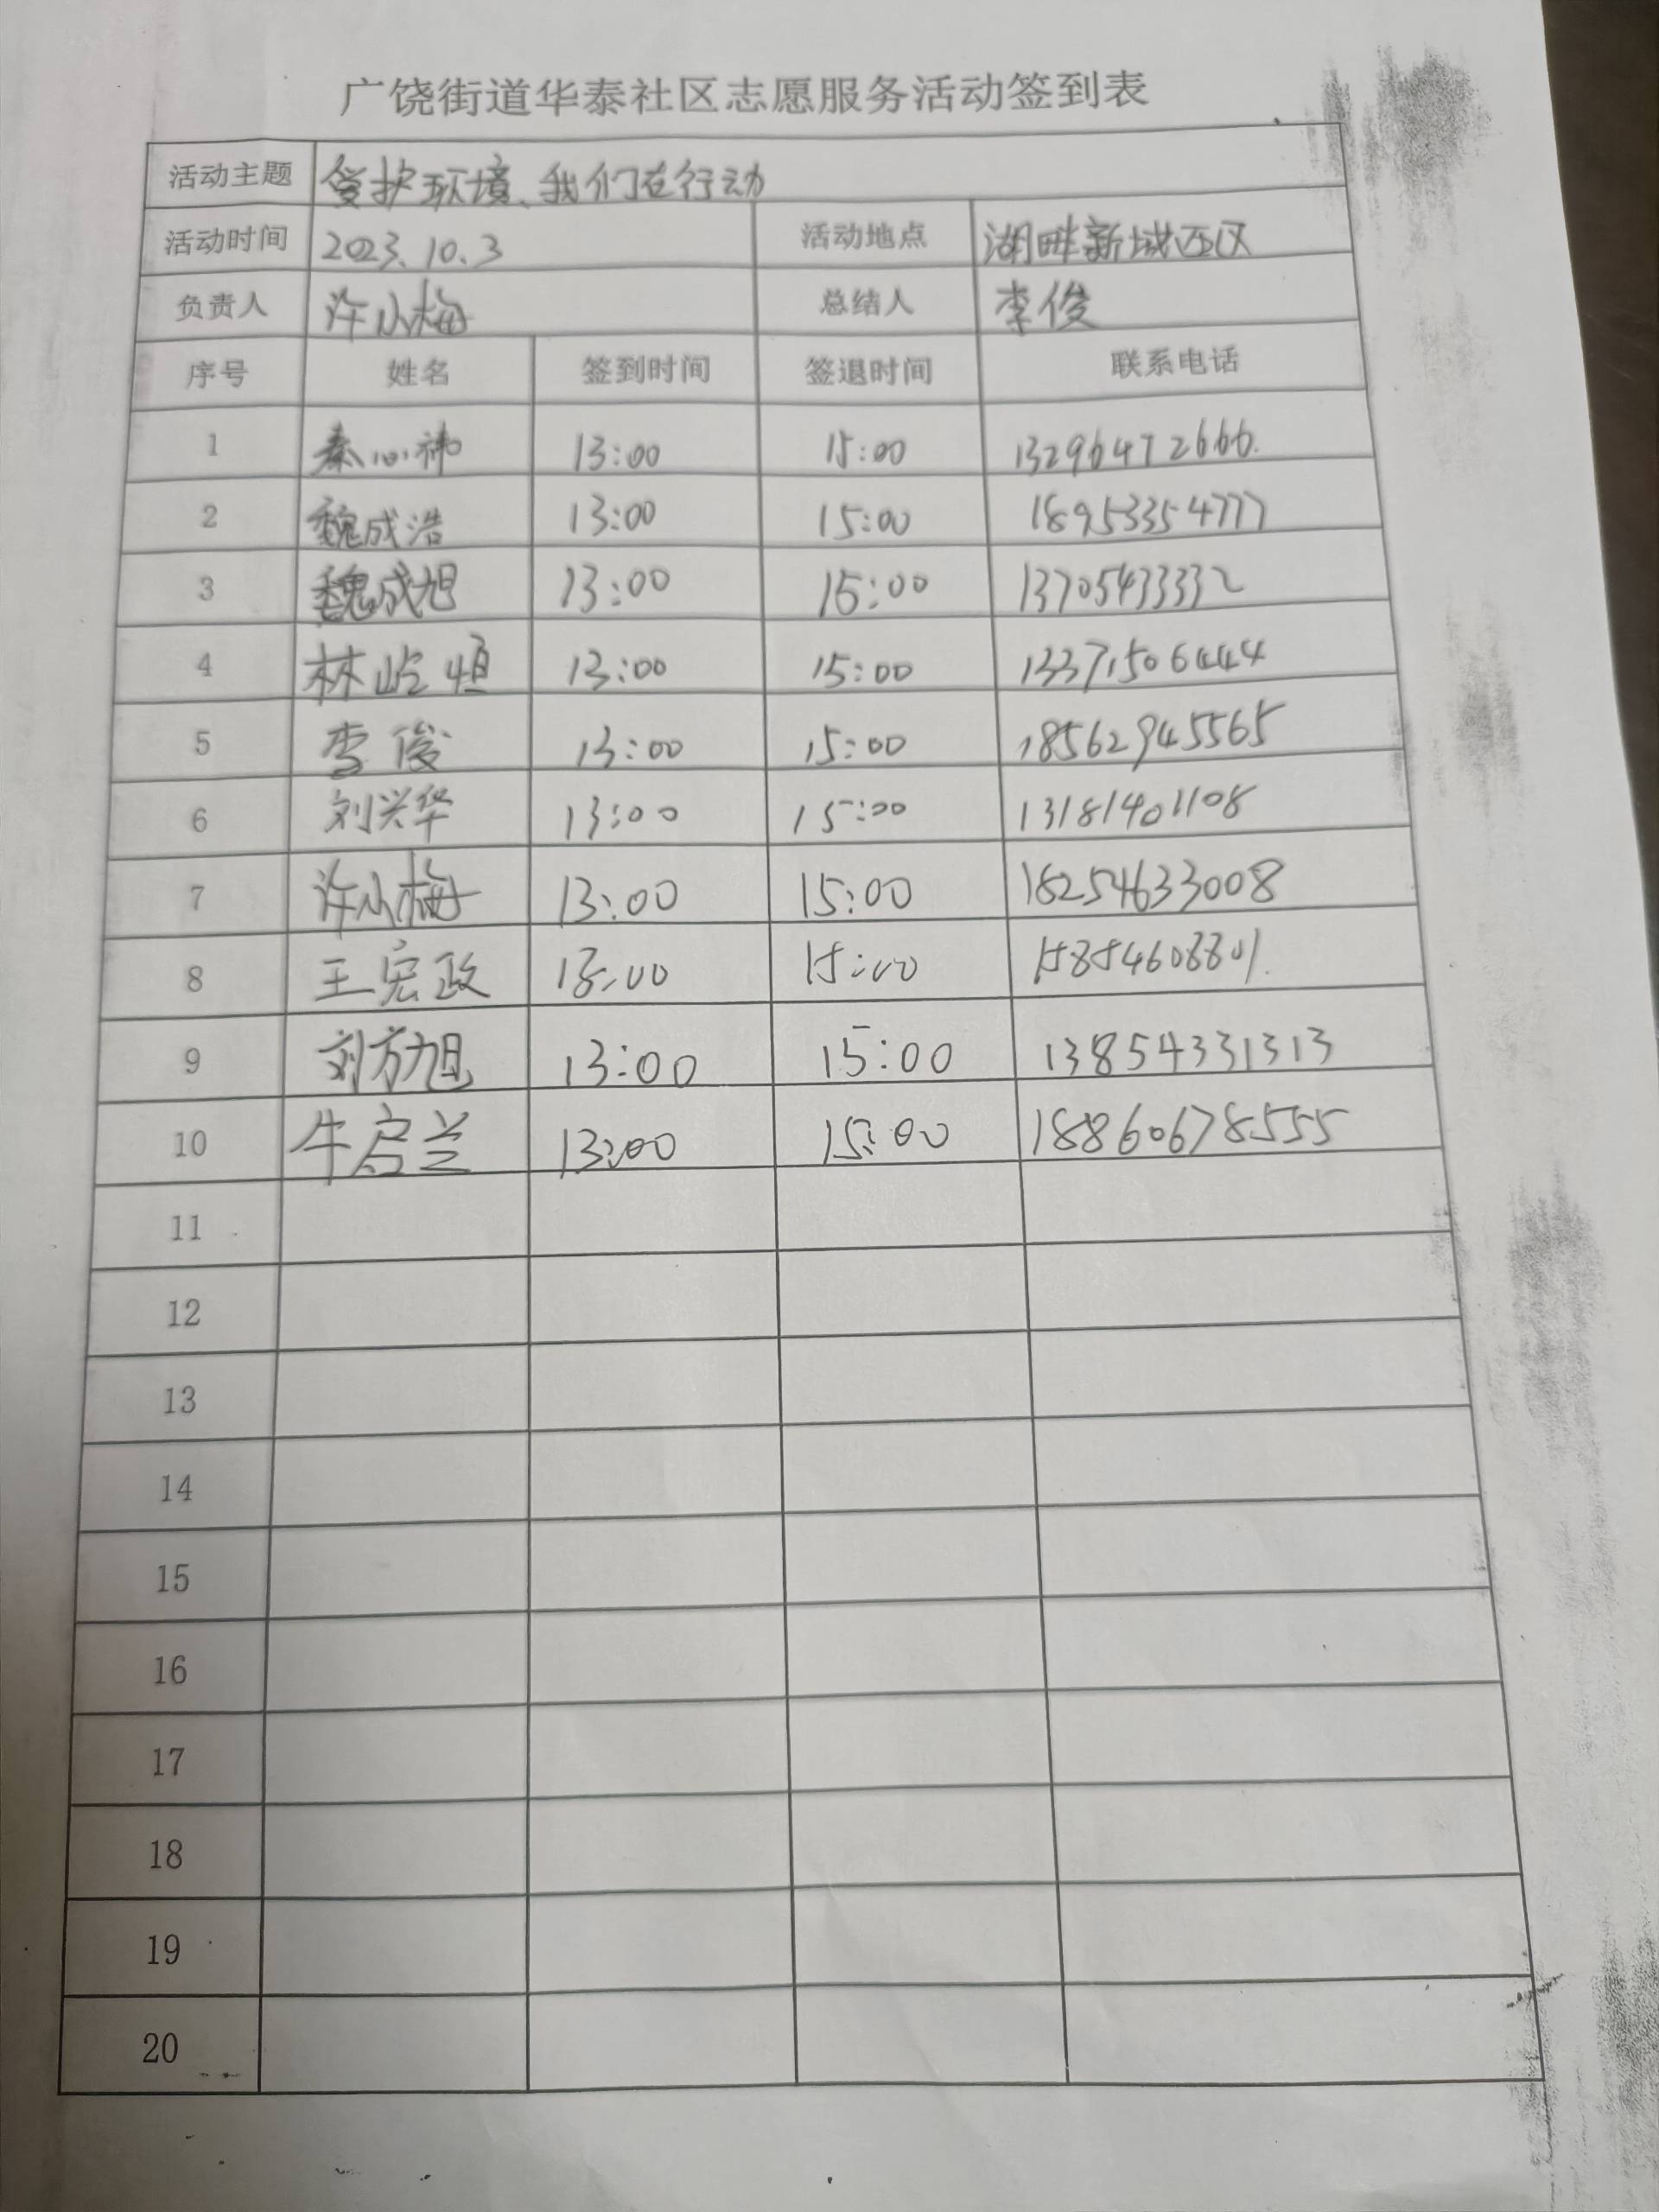 广饶街道华泰社区志愿服务活动签到表
活动主题 爱护环境、我们在行动
活动时间 2023.10.3 活动地点 湖畔新城西区
负责人 许小梅 总结人 李俊
序号 姓名 签到时间 签退时间 联系电话
1 秦心祎 13:00 15:00 13296472666
2 魏成浩 13:00 15:00 18953354777
3 魏成旭 13:00 15:00 13705433332
4 林屹恒 13:00 15:00 13371506444
5 李俊 13:00 15:00 18562945565
6 刘兴华 13:00 15:00 13181401108
7 许小梅 13:00 15:00 18254633008
8 王宏政 13:00 15:00 15854608801
9 刘方旭 13:00 15:00 13854331313
10 牛启兰 13:00 15:00 18860678555
11
12
13
14
15
16
17
18
19
20